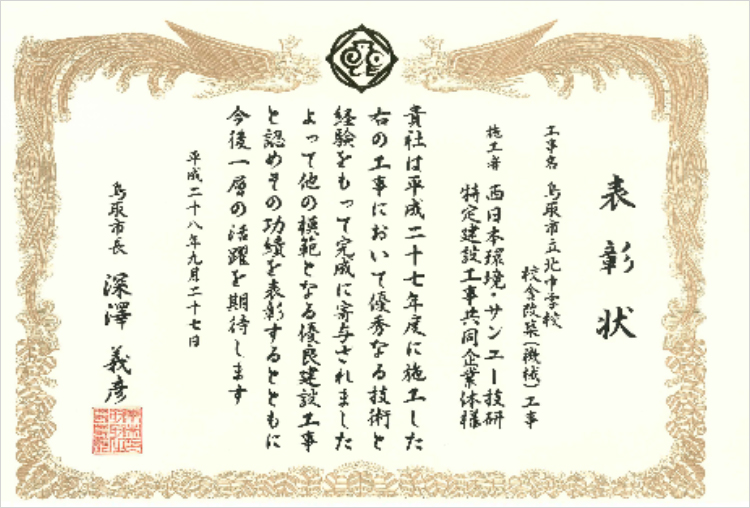 表彰状
工事名 鳥取市立北中学校
校舎改築(機械)工事
施工者 西日本環境・サンエー技研
特定建設工事共同企業体様
貴社は平成二十七年度に施工した
右の工事において優秀なる技術と
経験をもって完成に寄与されました
よって他の模範となる優良建設工事
と認めその功績を表彰するとともに
今後一層の活躍を期待します
平成二十八年九月二十七日
鳥取市長 深澤義彦